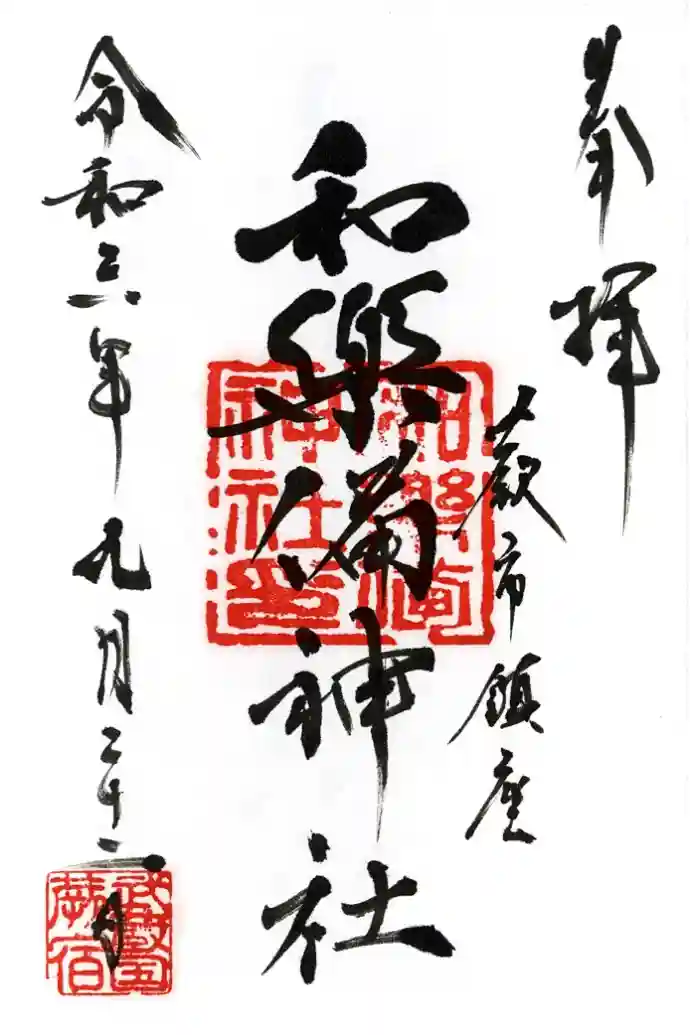 奉拝
蕨市鎮座
和樂備神社
和樂備
神社印
令和三年九月二十二日
蕨宿